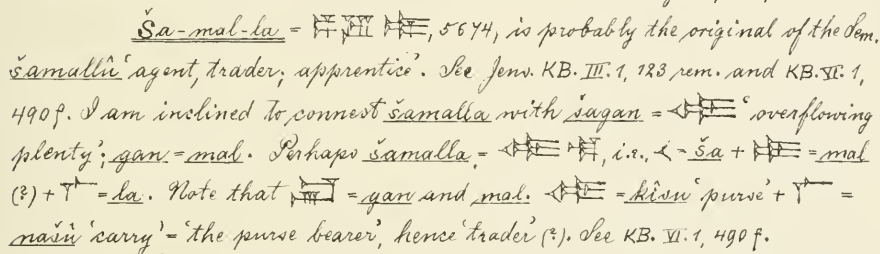 Ša-mal-la = , 5674, is probably the original of the Sem.
šamallû ‘agent, trader; apprentice’. See Jens. KB. III. 1, 123 rem. and KB. VI. 1,
490 f. I am inclined to connect šamalla with šagan = ‘overflowing
plenty’; gan = mal. Perhaps šamalla = , i.e., = ša + = mal
(?) + = la. Note that = gan and mal. = kîsu ‘purse’ + =
našû ‘carry’ = ‘the purse bearer’, hence ‘trader’ (?). See KB. VI. 1, 490 f.